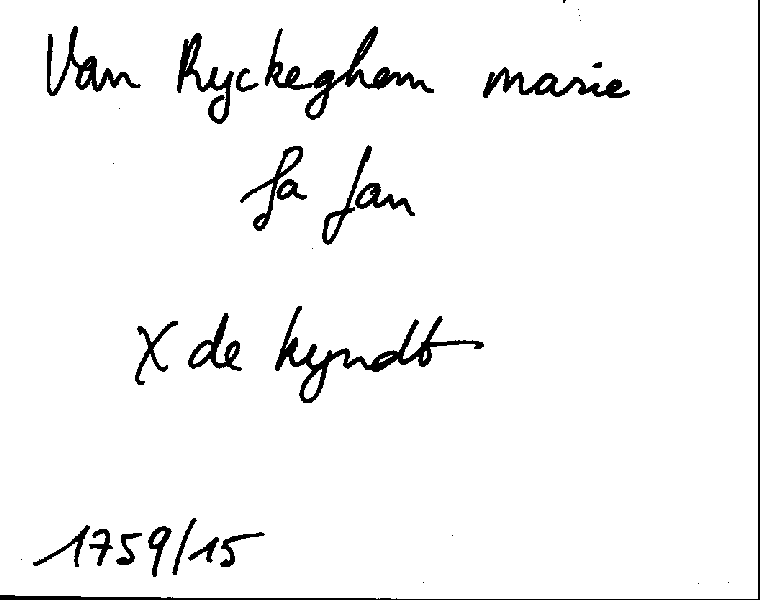 Van Ryckeghem marie
fa Jan
X de kyndt
1759/15